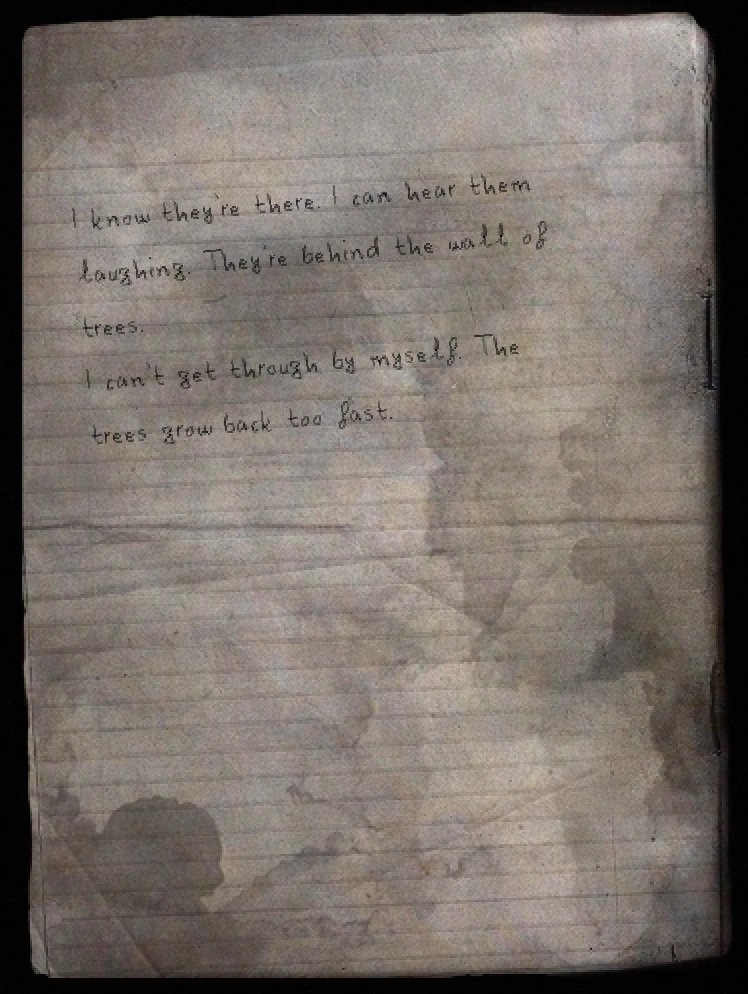 I know they're there. I can hear them
laughing. They're behind the wall of
trees.
I can't get through by myself. The
trees grow back too fast.